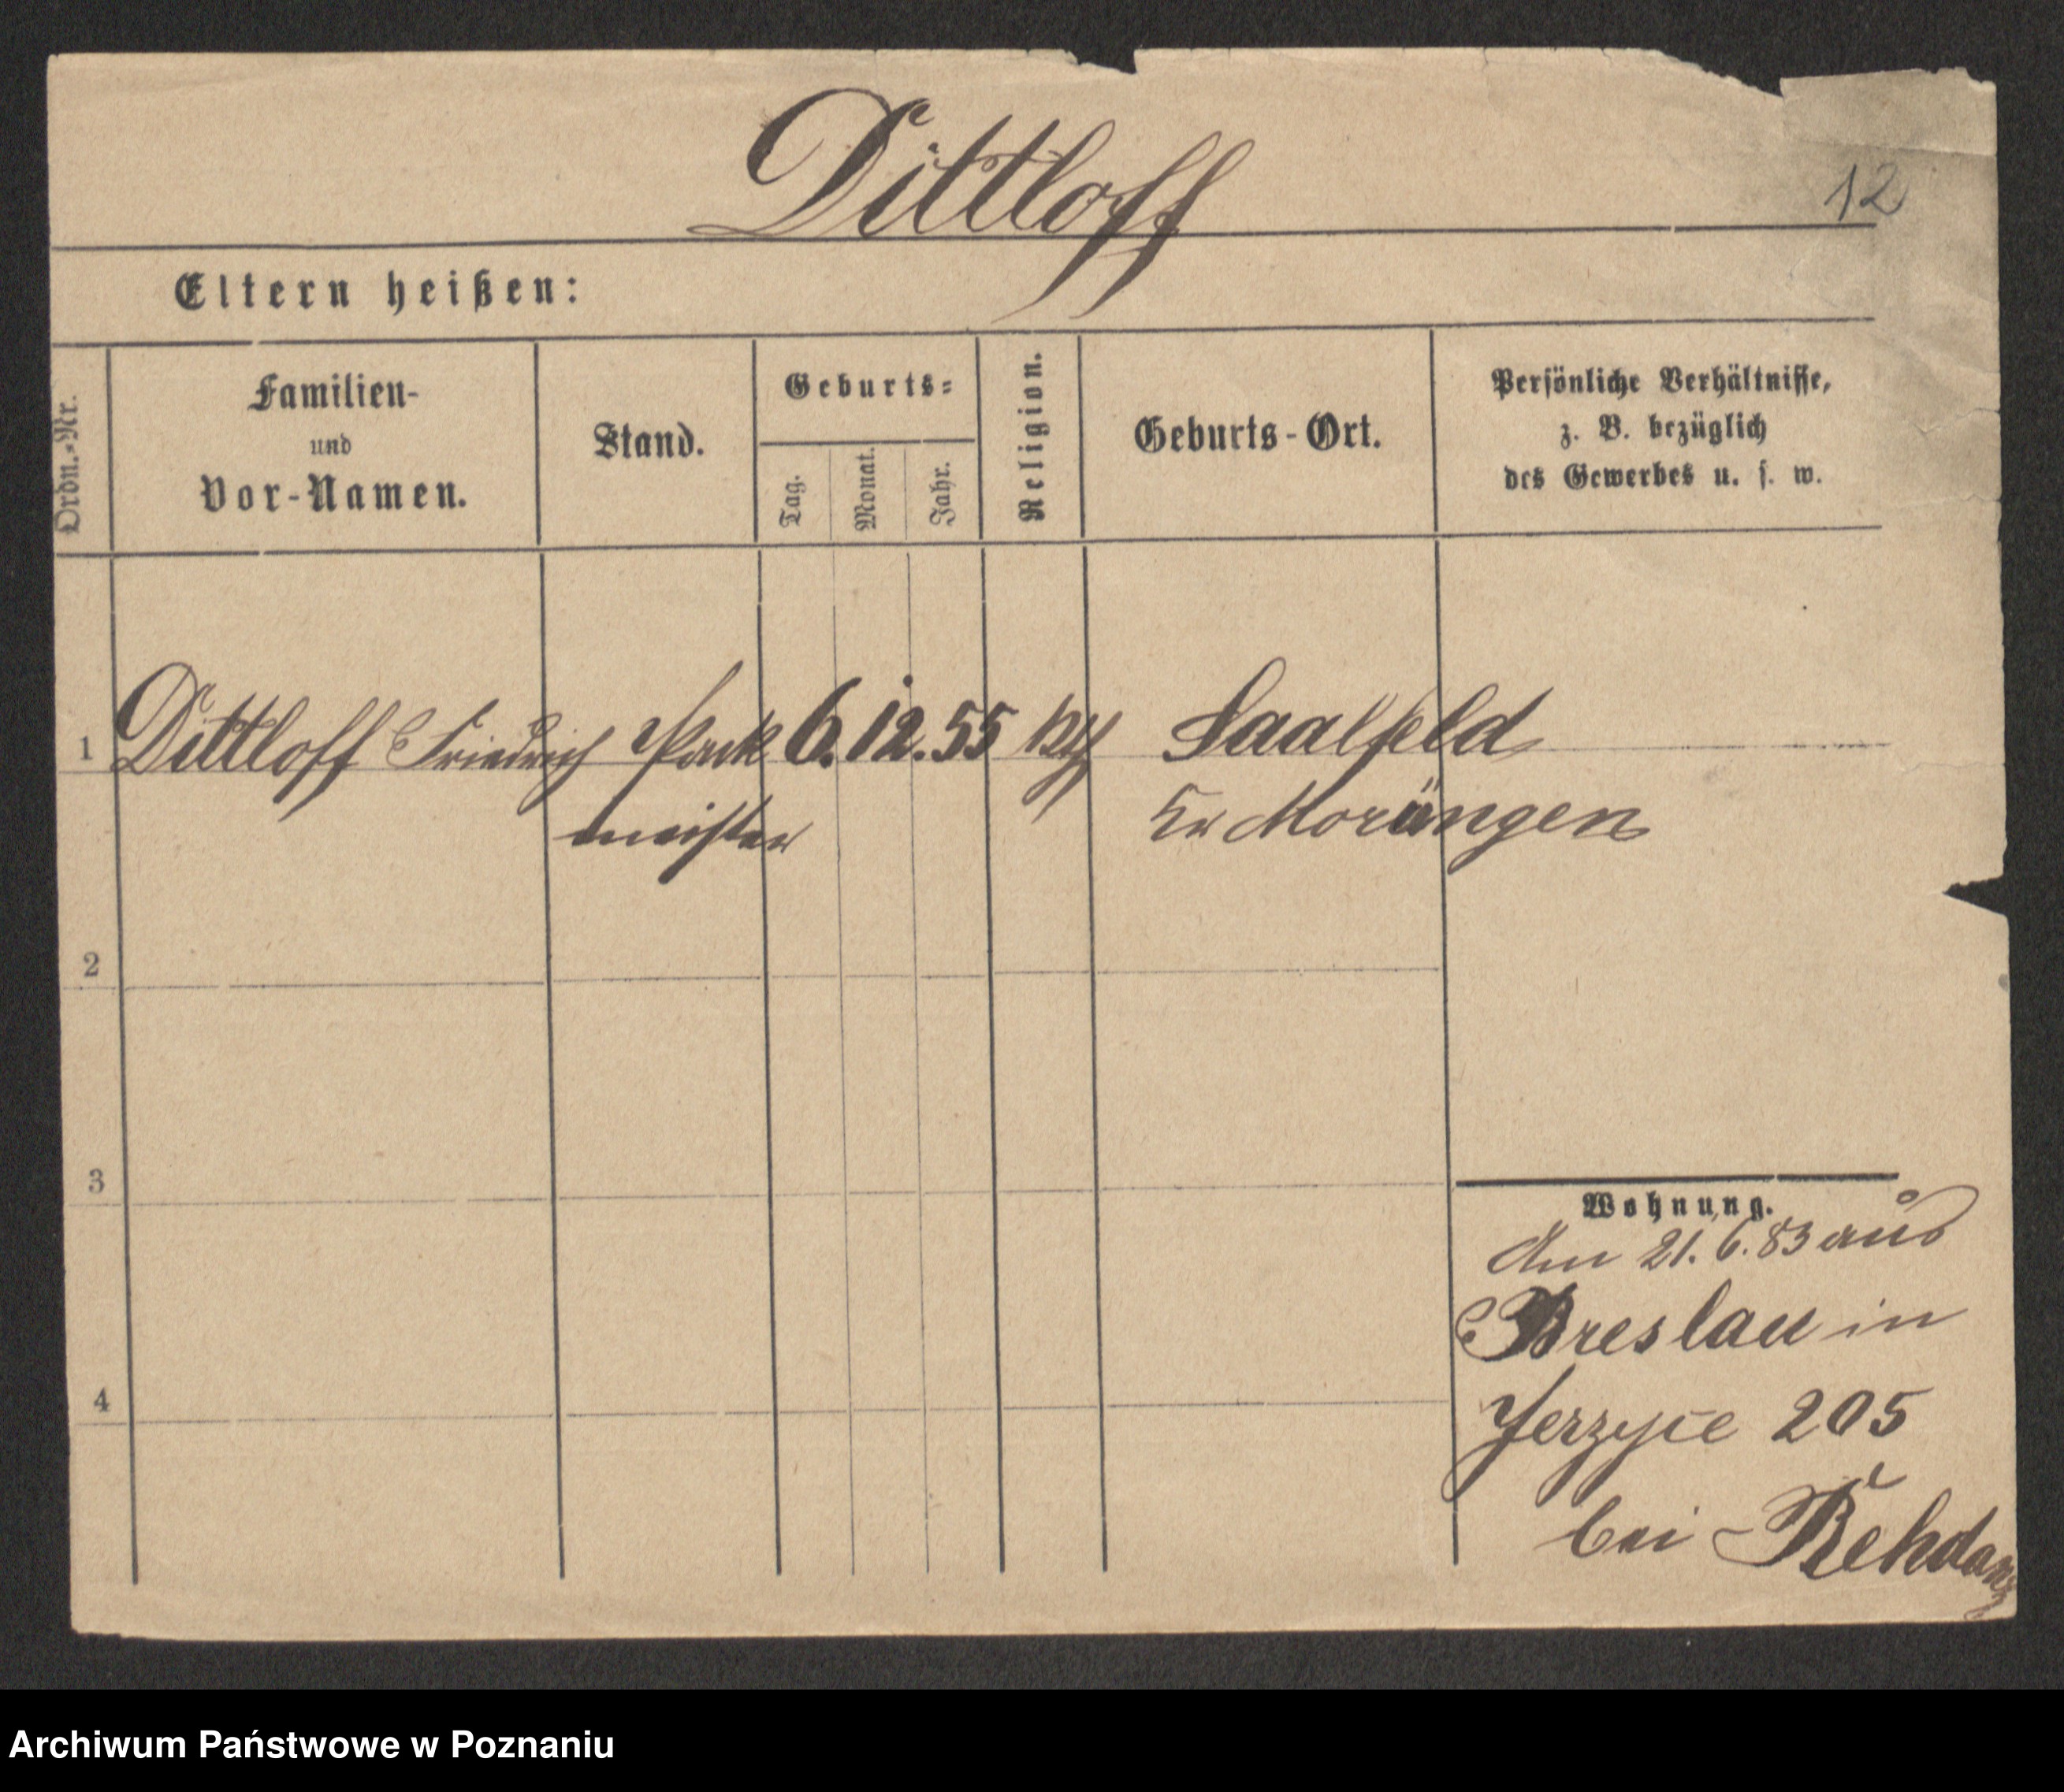 Dittloff
12
Eltern heißen:
Ordn.-Nr.
Familien-
und
Vor-Namen.
Stand.
Geburts-
Tag.
Monat.
Jahr.
Religion.
Geburts-Ort.
Persönliche Verhältnisse,
z. B. bezüglich
des Gewerbes u. s. w.
1 Dittloff Friedrich Pack 6. 12. 55 Saalfeld
meister Kr Morüngen
2
3
4
Wohnung.
Am 21. 6. 83 aus
Breslau in
Jerzyce 205
bei Rehdanz
Archiwum Państwowe w Poznaniu